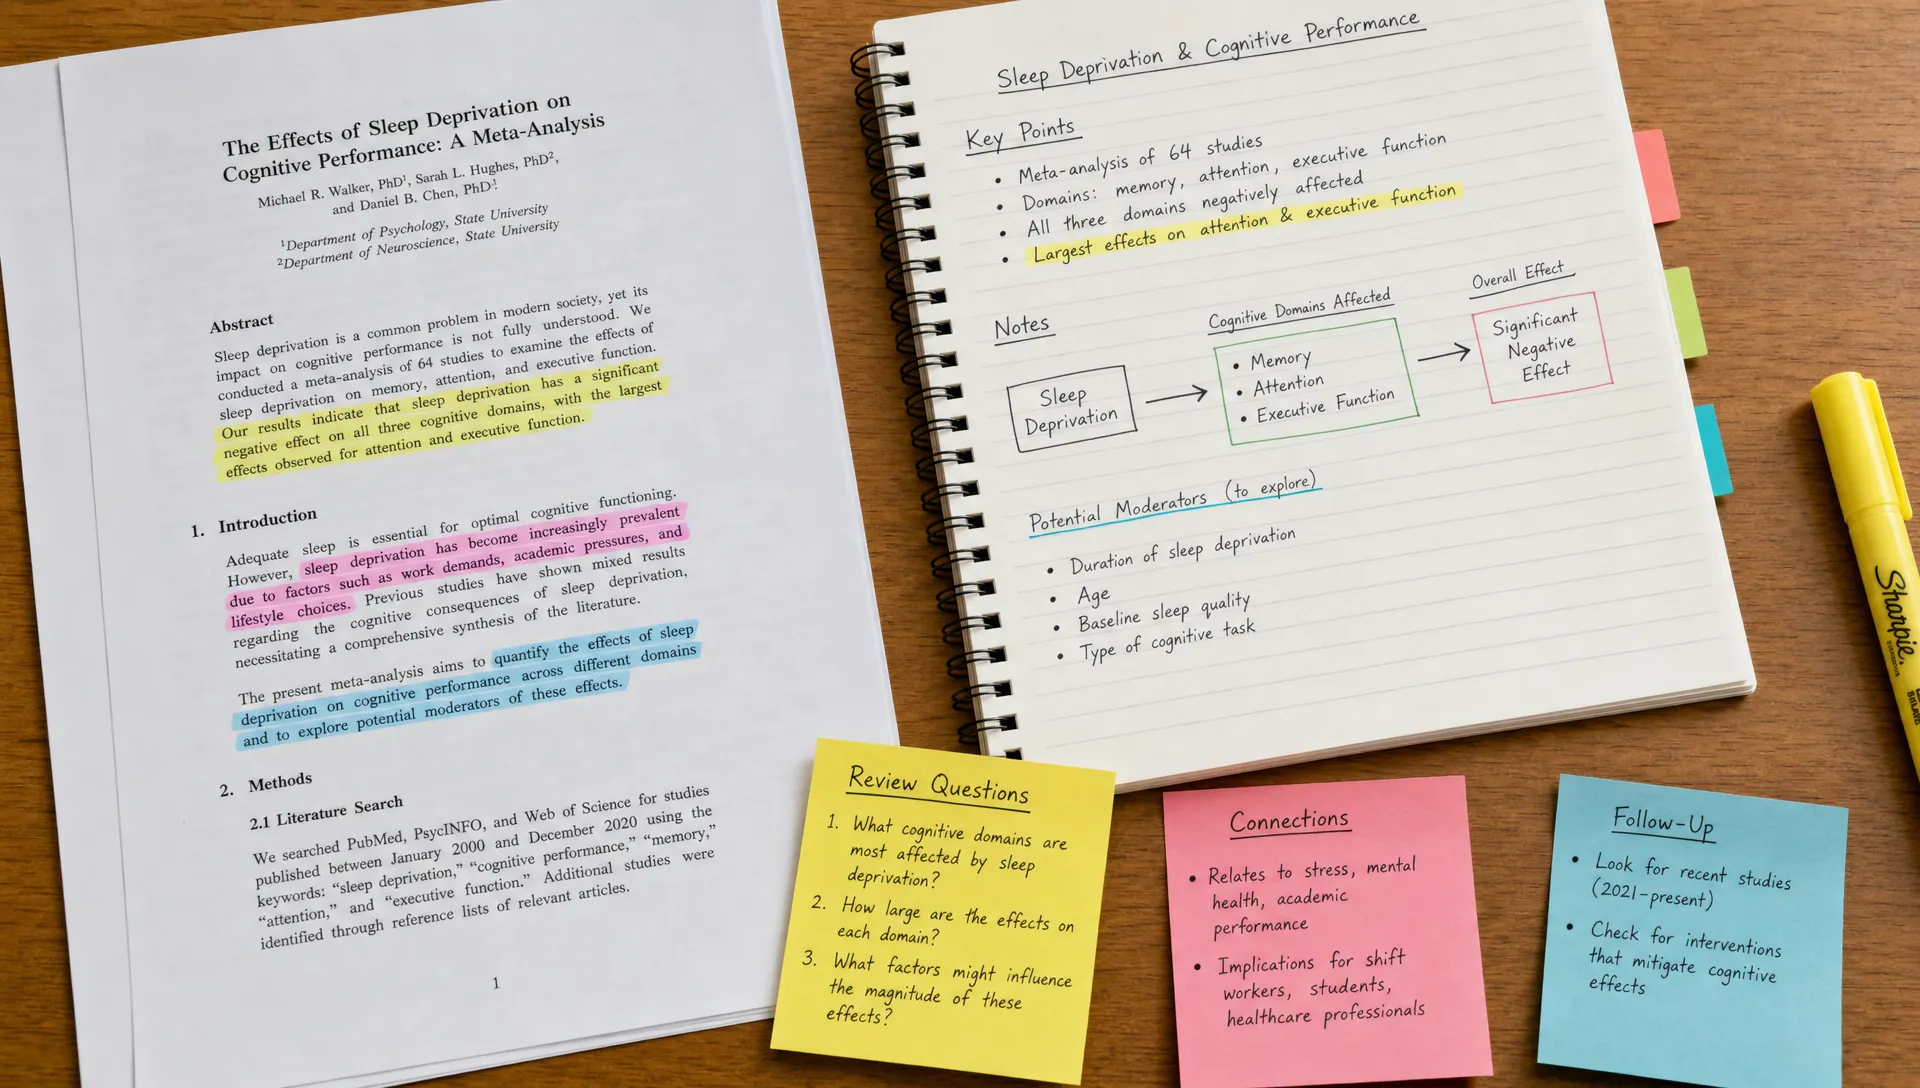 The Effects of Sleep Deprivation on
Cognitive Performance: A Meta-Analysis
Michael R. Walker, PhD¹, Sarah L. Hughes, PhD²,
and Daniel B. Chen, PhD¹
¹Department of Psychology, State University
²Department of Neuroscience, State University
Abstract
Sleep deprivation is a common problem in modern society, yet its
impact on cognitive performance is not fully understood. We
conducted a meta-analysis of 64 studies to examine the effects of
sleep deprivation on memory, attention, and executive function.
Our results indicate that sleep deprivation has a significant
negative effect on all three cognitive domains, with the largest
effects observed for attention and executive function.
1. Introduction
Adequate sleep is essential for optimal cognitive functioning.
However, sleep deprivation has become increasingly prevalent
due to factors such as work demands, academic pressures, and
lifestyle choices. Previous studies have shown mixed results
regarding the cognitive consequences of sleep deprivation,
necessitating a comprehensive synthesis of the literature.
The present meta-analysis aims to quantify the effects of sleep
deprivation on cognitive performance across different domains
and to explore potential moderators of these effects.
2. Methods
2.1 Literature Search
We searched PubMed, PsycINFO, and Web of Science for studies
published between January 2000 and December 2020 using the
keywords: “sleep deprivation,” “cognitive performance,” “memory,”
“attention,” and “executive function.” Additional studies were
identified through reference lists of relevant articles.
1
Sleep Deprivation & Cognitive Performance
Key Points
• Meta-analysis of 64 studies
• Domains: memory, attention, executive function
• All three domains negatively affected
• Largest effects on attention & executive function
Notes
Sleep
Deprivation
Cognitive Domains Affected
• Memory
• Attention
• Executive Function
Overall Effect
Significant
Negative
Effect
Potential Moderators (to explore)
• Duration of sleep deprivation
• Age
• Baseline sleep quality
• Type of cognitive task
Review Questions
1. What cognitive domains are
most affected by sleep
deprivation?
2. How large are the effects on
each domain?
3. What factors might influence
the magnitude of these
effects?
Connections
• Relates to stress, mental
health, academic
performance
• Implications for shift
workers, students,
healthcare professionals
Follow-Up
• Look for recent studies
(2021-present)
• Check for interventions
that mitigate cognitive
effects
Sharpie.